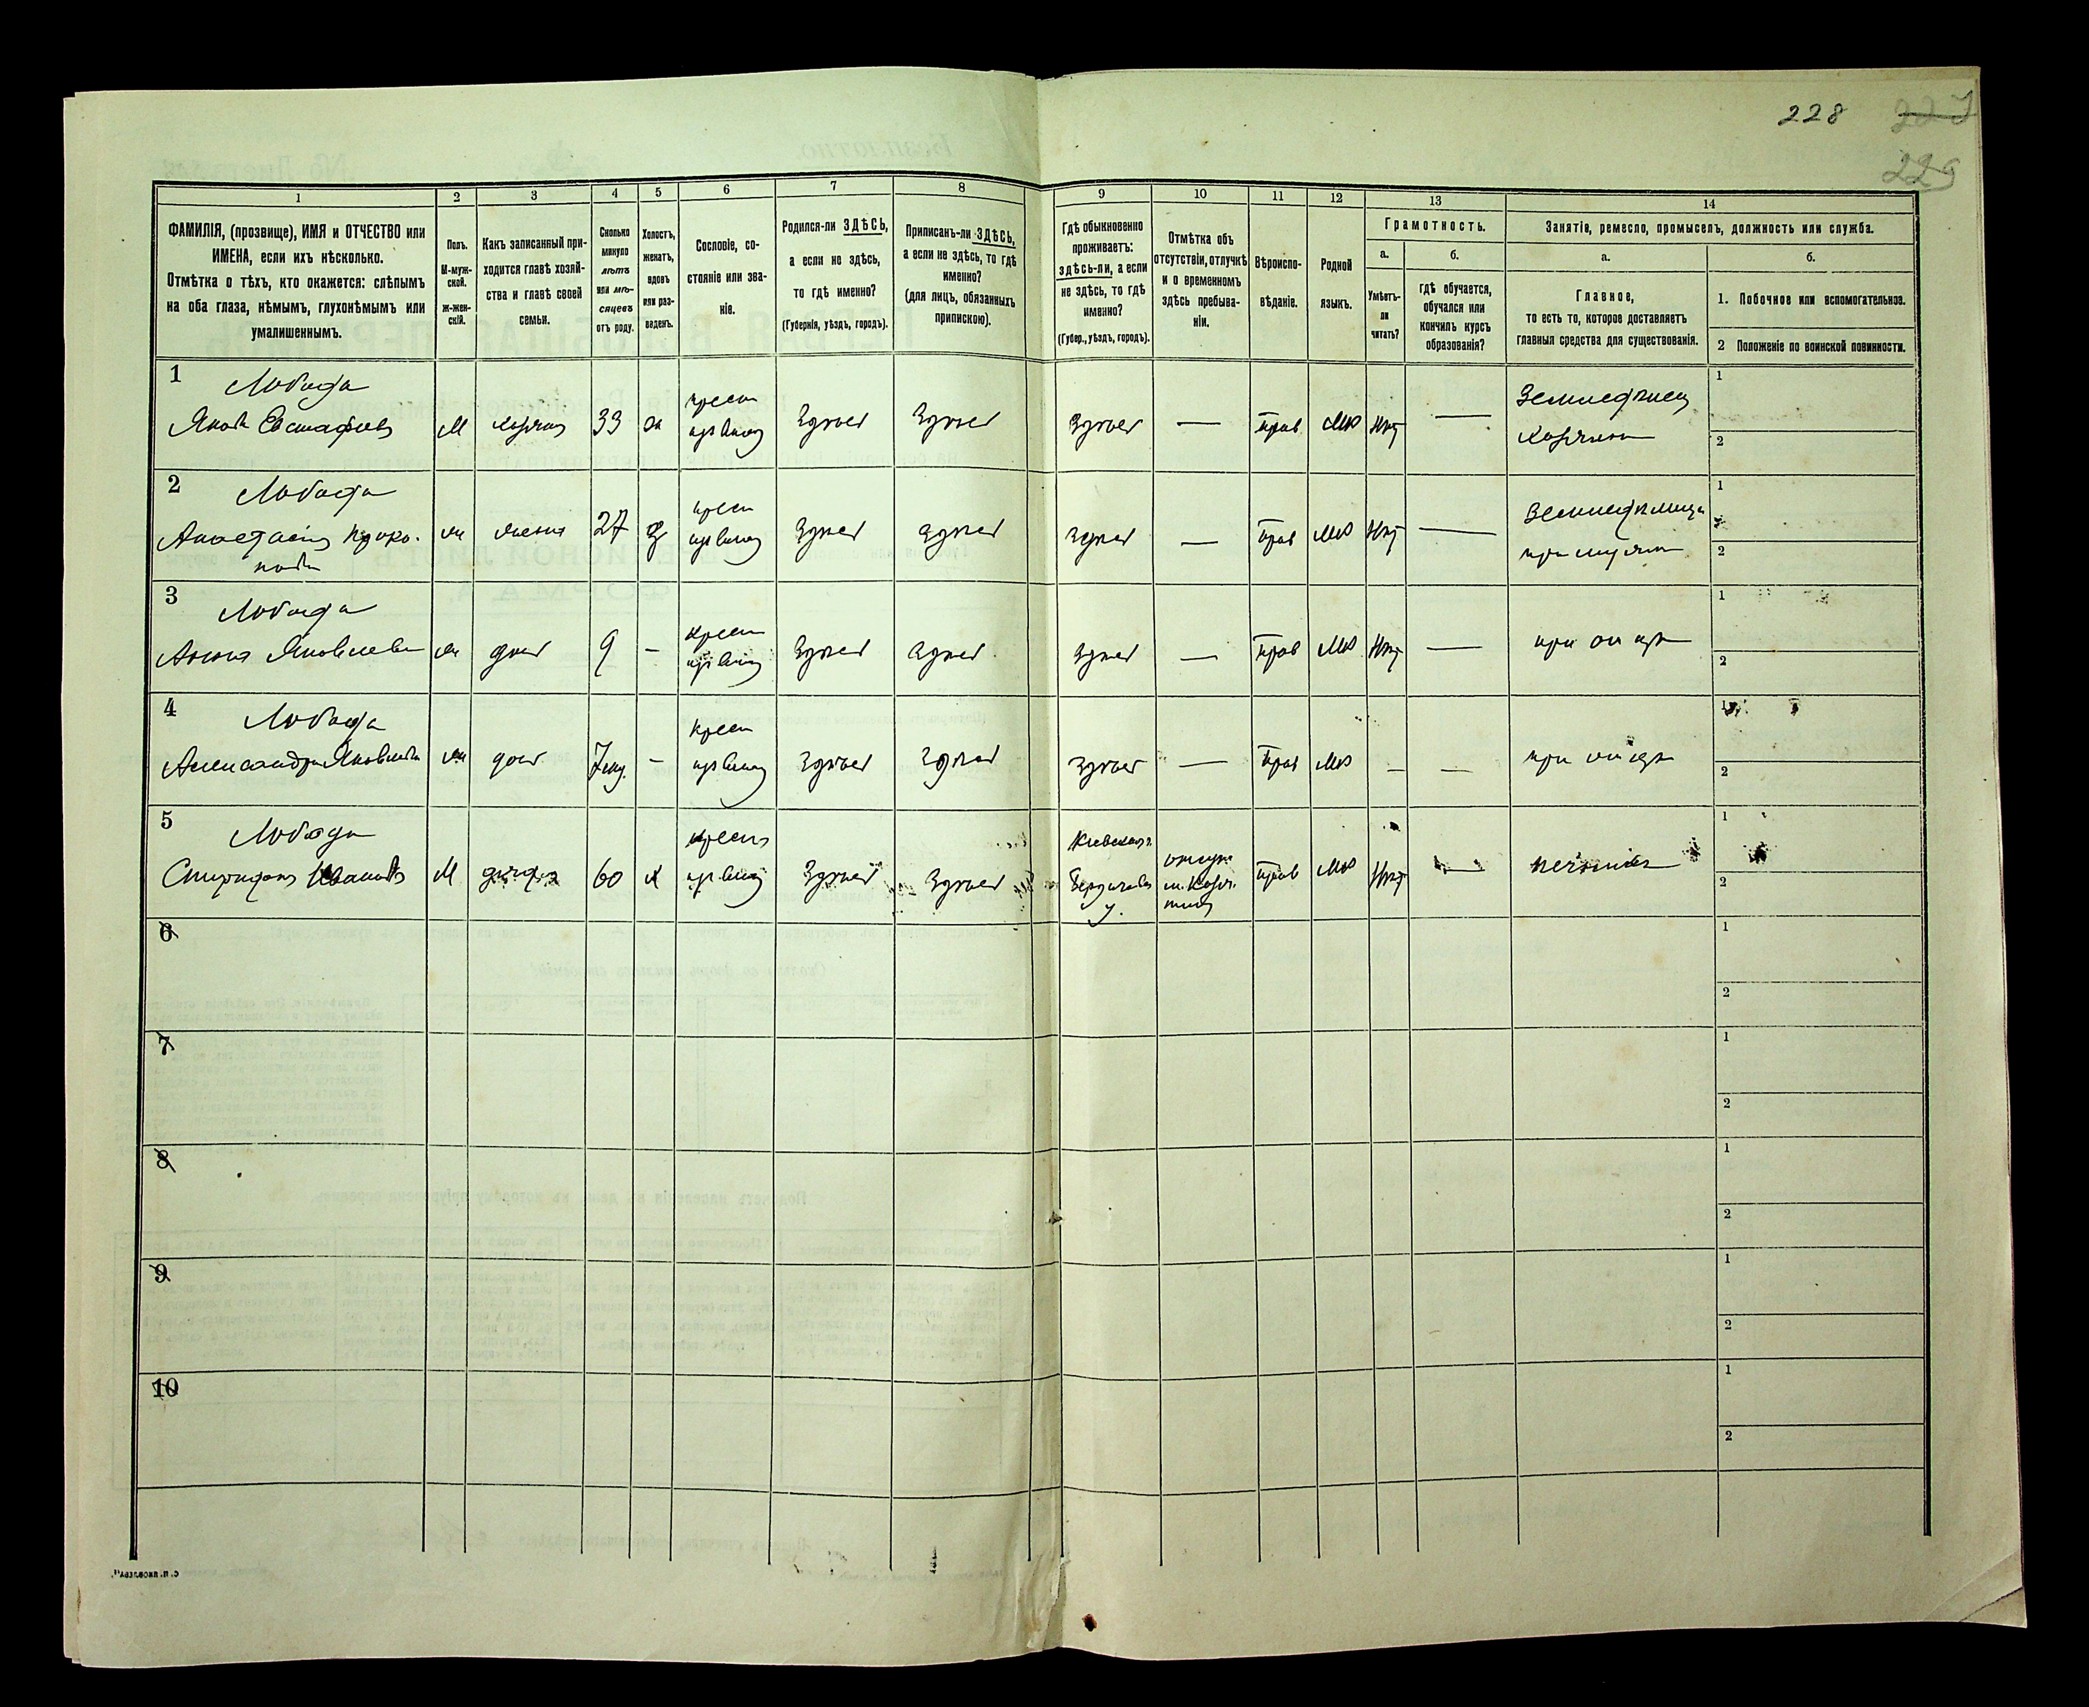 228 227
229
1 2 3 4 5 6 7 8 9 10 11 12 13 14
ФАМИЛІЯ, (прозвище), ИМЯ и ОТЧЕСТВО или
ИМЕНА, если ихъ нѣсколько.
Отмѣтка о тѣхъ, кто окажется: слѣпымъ
на оба глаза, нѣмымъ, глухонѣмымъ или
умалишеннымъ.
Полъ.
М-муж-
ской.
ж-жен-
скій.
Какъ записанный при-
ходится главѣ хозяй-
ства и главѣ своей
семьи.
Сколько
минуло
лѣтъ
или мѣ-
сяцевъ
отъ роду.
Холостъ,
женатъ,
вдовъ
или раз-
веденъ.
Сословіе, со-
стояніе или зва-
ніе.
Родился-ли ЗДѢСЬ,
а если не здѣсь,
то гдѣ именно?
(Губернія, уѣздъ, городъ).
Приписанъ-ли ЗДѢСЬ,
а если не здѣсь, то гдѣ
именно?
(для лицъ, обязанныхъ
припискою).
Гдѣ обыкновенно
проживаетъ:
здѣсь-ли, а если
не здѣсь, то гдѣ
именно?
(Губер., уѣздъ, городъ).
Отмѣтка объ
отсутствіи, отлучкѣ
и о временномъ
здѣсь пребыва-
ніи.
Вѣроиспо-
вѣданіе.
Родной
языкъ.
Грамотность.
а. б.
Умѣетъ-
ли
читать?
гдѣ обучается,
обучался или
кончилъ курсъ
образованія?
Занятіе, ремесло, промыселъ, должность или служба.
а. б.
Главное,
то есть то, которое доставляетъ
главныя средства для существованія.
1. Побочное или вспомогательное.
2 Положеніе по воинской повинности.
1 Лобода
Яковъ Евстафьевъ М хозяинъ 33 ж Здѣсь Здѣсь Здѣсь — Прав Мал Нѣтъ —
Хозяинъ
1
2
2 Лобода
Анастасія Проко-
повна ж жена 27 Здѣсь Здѣсь Здѣсь — Прав Мал Нѣтъ —
при мужѣ
1
2
3 Лобода
Анна Яковлева ж дочь 9 — Здѣсь Здѣсь Здѣсь — Прав Мал Нѣтъ — при отцѣ
1
2
4 Лобода
Александра Яковлева ж дочь — Здѣсь Здѣсь Здѣсь — Прав Мал — — при отцѣ
1
2
5 Лобода
Спиридонъ Ивановъ М дядя 60 Здѣсь Здѣсь
Кіевская
Бердичевъ
у.
Прав Мал Нѣтъ —
1
2
6
1
2
7
1
2
8
1
2
9
1
2
10
1
2
С. П. ЯКОВЛЕВА".